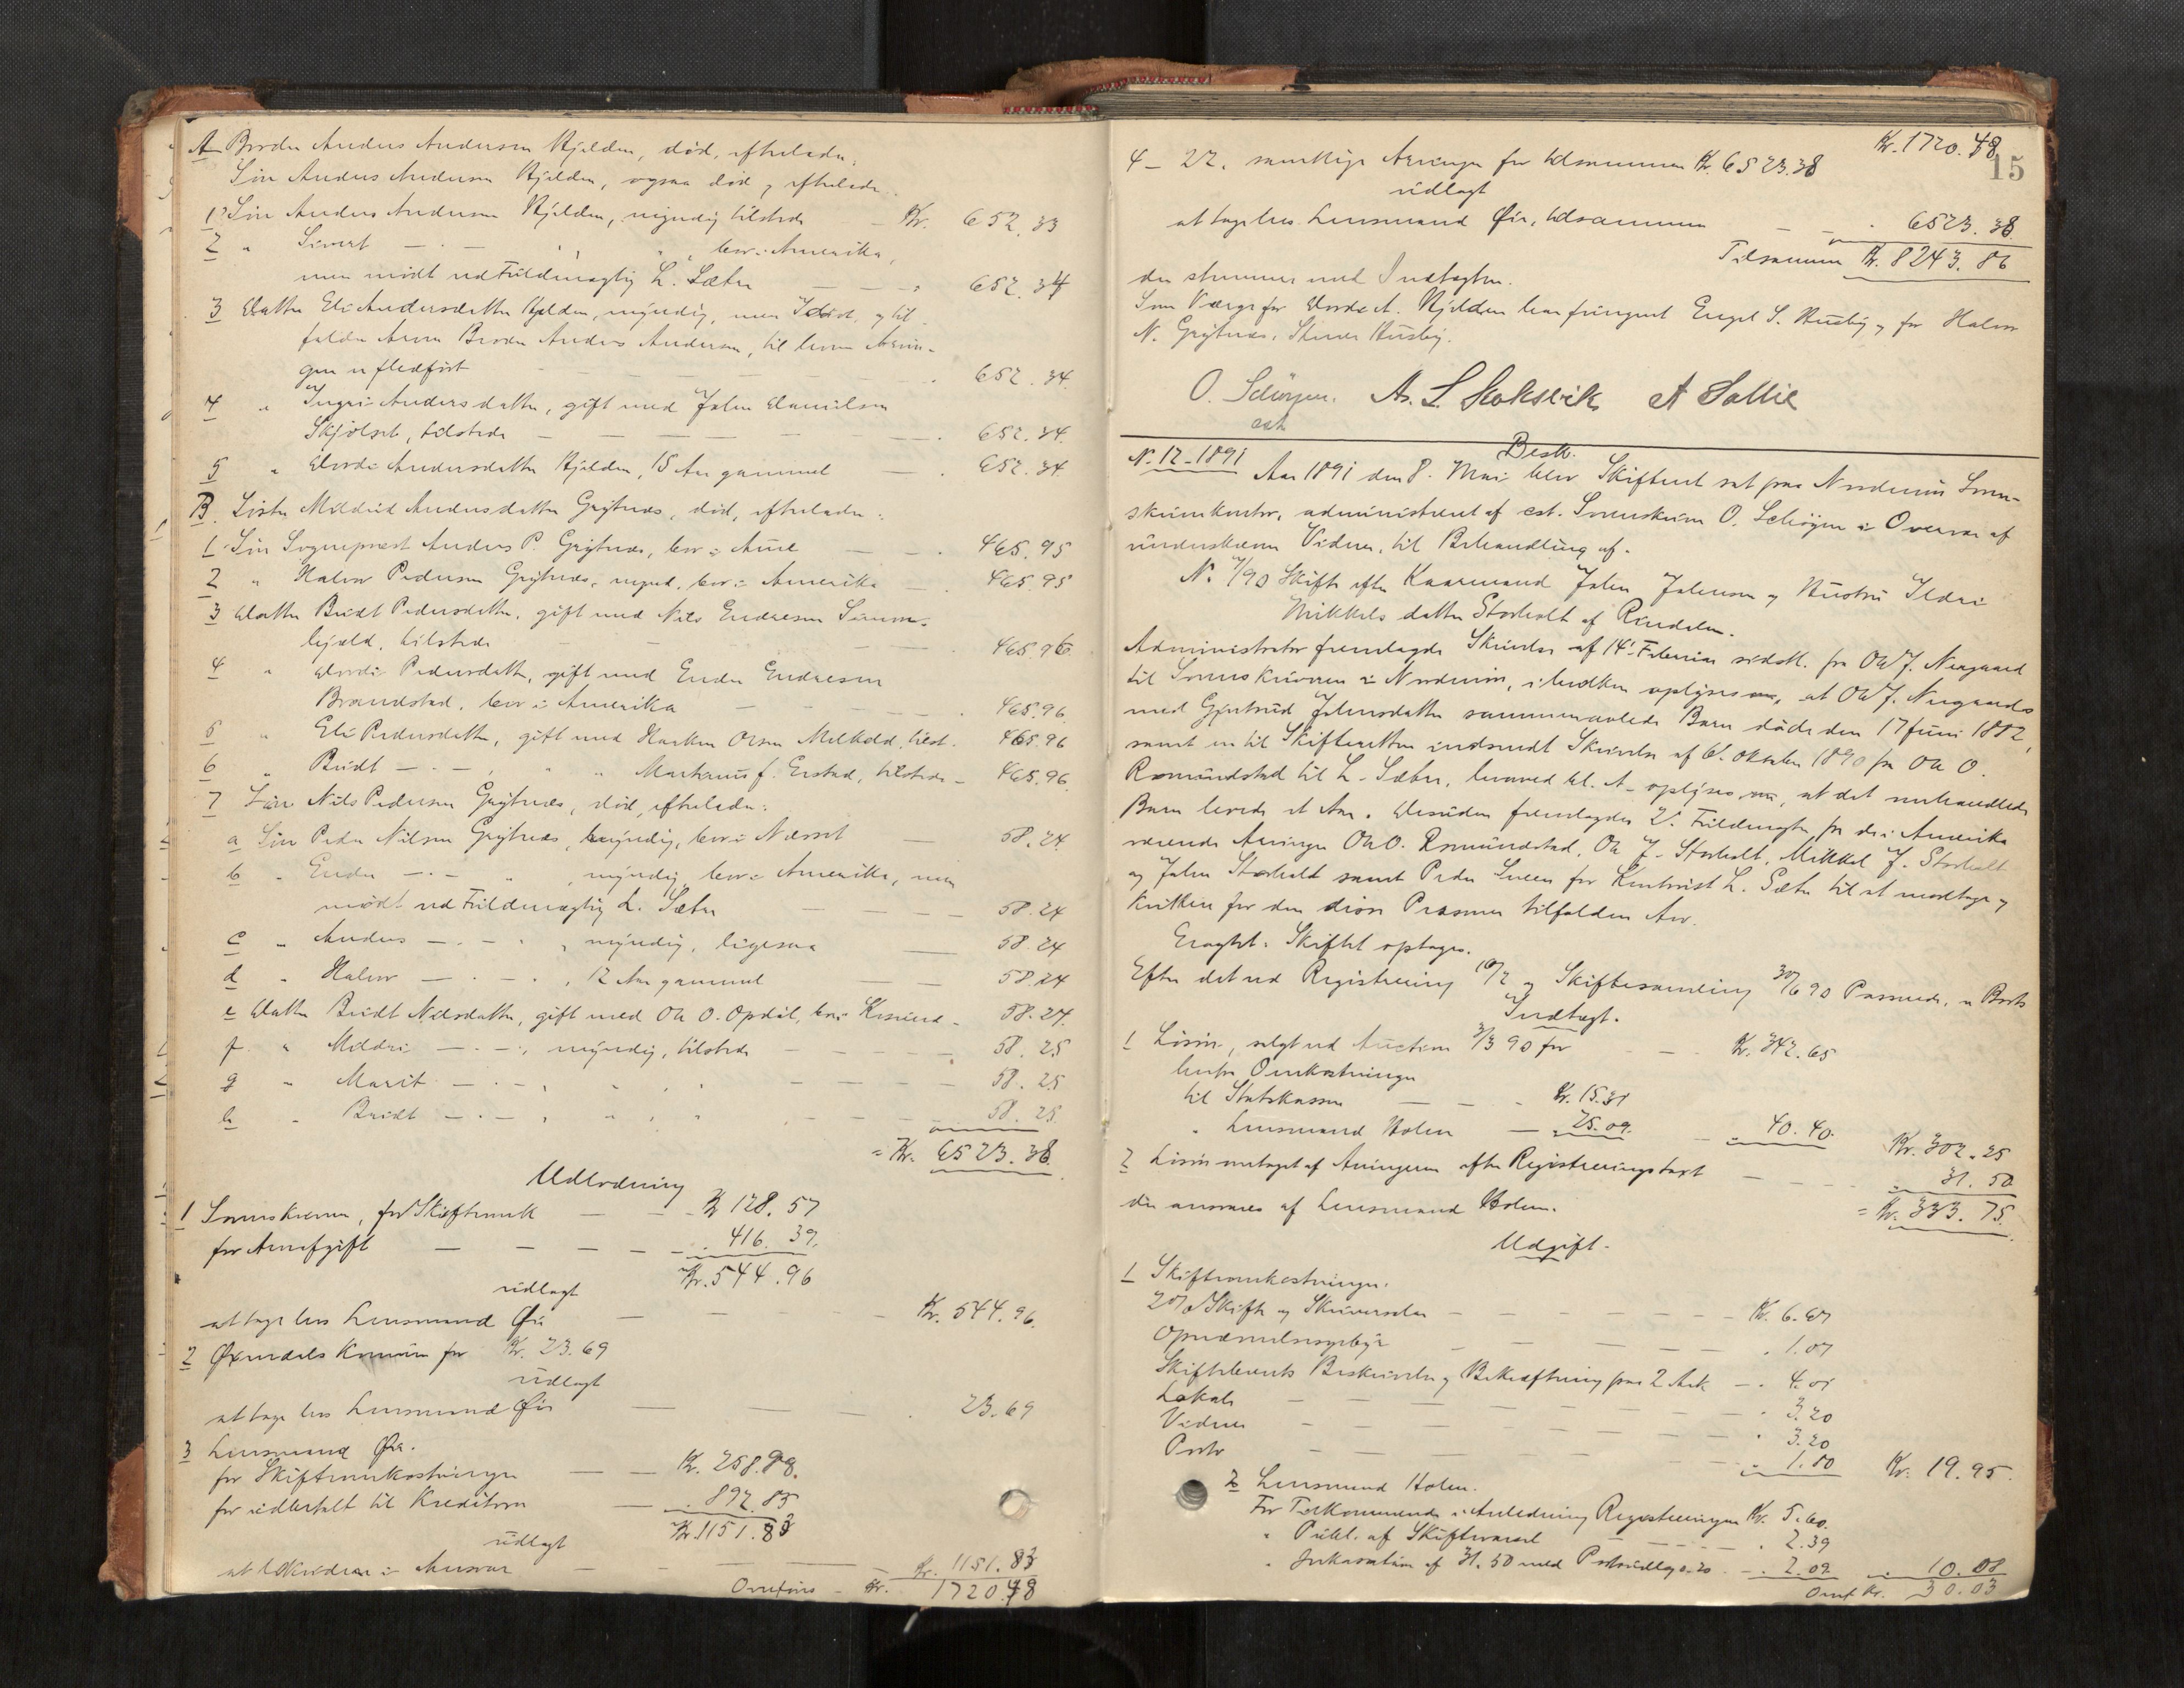 A Broder Anders Andersen Hjelden, død, efterlader:
Søn Anders Andersen Hjelden, ogsaa død, efterlader
1 Søn Anders Andersen Hjelden, myndig tilstede — Kr. 652.33
2 " Sivert — · — , " bor i Amerika,
men mødt ved Fuldmægtig L. Sæter — — — " 652.34
3 Datter Eli Andersdatter Hjelden, myndig, men og til
falder Arven Broder Anders Andersen, til hvem Arvin-
gen er fledført — — — 652.34
4 " Ingri Andersdatter, gift med John Danielsen
Skjølset, tilstede — — — 652.34
5 " Dordi Andersdatter Hjelden, 15 Aar gammel — 652.34
B. Søster Mildrid Andersdatter Grytnes, død, efterlader:
1 Søn Sogneprest Anders P. Grytnes, bor i Aure — — 465.95
2 " Halvor Pedersen Grytnes, mynd., bor i Amerika — 465.95
3 Datter Beret Pedersdatter, gift med Nils Endresen
tilstede — — — 465.96
4 " Dordi Pedersdatter, gift med Endre Endresen
Brandstad, bor i Amerika — — — 465.96
5 " Eli Pedersdatter, gift med Haaken Olsen tilst. 465.96
6 " Beret — · — , " " Markus J. Erstad, tilstede — 465.96
7 Søn Nils Pedersen Grytnes, død, efterlader:
a Søn Peder Nilsen Grytnes, myndig, bor i Nesset — 58.24
b " Endre — · — " , myndig, bor i Amerika, men
mødt ved Fuldmægtig L. Sæter — — — 58.24
c " Anders — · — " , myndig, ligesaa — 58.24
d " Halvor — · — " , 12 Aar gammel — — 58.24
e Datter Beret Nilsdatter, gift med Ole O. Opdøl, bor i — 58.24
f " Mildri — · — , myndig, tilstede — — — 58.25
g " Marit — · — , " , " — — — 58.25
h " Beret — · — , " , " — — — 58.25
= Kr. 6523.38
Udlodning
1 Sorenskriveren, for Skifteomk — — Kr 128.57
for Arveafgift — — — 416.39.
Kr. 544.96
udlagt
at tage hos Lensmand Øie — — — Kr. 544.96.
2 Øxendals Kommune for Kr. 23.69
udlagt
at tage hos Lensmand Øie — — — 23.69
3 Lensmand Øie.
for Skifteomkostninger — — Kr. 258.98.
for udbetalt til Kreditorer — 892.85
Kr. 1151.83
udlagt
at likvideres i Ansvar — — — Kr. 1151.83
Overføres — Kr. 1720.48
Kr. 1720.48
15
4 – 22. samtlige Arvinger for tilsammen Kr. 6523.38
udlagt
at tage hos Lensmand Øie, tilsammen — — " 6523.38
Tilsammen Kr. 8243.86
der stemmer med Indtægten.
Som Værge for Dordi A. Hjelden har fungeret Engel S. Husby og for Halvor
N. Grytnes, Husby.
O. Schøyen. As. L. Stokseth A Sollie
cst
Besk.
N. 12–1891 Aar 1891 den 8. Mai blev Skifteret sat paa Nordmøre Soren-
skriverkontor, administreret af cst. Sorenskriver O. Schøyen i Overvær af
underskrevne Vidner, til Behandling af.
N. 7/90 Skifte efter Kaarmand John Johnsen og Hustru Ildri
Mikkelsdatter Storholt af Rindalen.
Administrator fremlagde Skrivelse af 14. Februar sidstl. fra Ole J. Nergaard
til Sorenskriveren i Nordmøre, i hvilken oplyses at Ole J. Nergaards
med Gjertrud Johnsdatter sammenavlede Barn døde den 17 Juni 1882,
samt en til Skifteretten indsendt Skrivelse af 6. Oktober 1890 fra Ole O.
Romundstad til L. Sæter, hvorved bl. A. oplyses at det omhandlede
Barn levede et Aar. Desuden fremlagdes 2. Fuldmagter fra de i Amerika
værende Arvinger Ole O. Romundstad, Ole J. Storholt, Mikkel J. Storholt
og John Storholt samt Peder for L. Sæter til at modtage og
kvittere for den disse Personer tilfaldne Arv.
Eragtet: Skiftet optages.
Efter det ved Registrering 10/2 og Skiftesamling 30/6 90 Passerede, er Boets
Indtægt.
1 Løsøre, solgt ved Auction 3/3 90 for — — Kr. 342.65
herfra Omkostninger
til Statskassen — — — Kr. 15.31
" Lensmand Holen — " 25.09. — " 40.40. Kr. 302.25
2 Løsøre modtaget af Arvingerne efter Registreringstaxt — — — " 31.50
der ansvares af Lensmand Holen. = Kr. 333.75.
Udgift.
1 Skifteomkostninger.
2% Skifte og Skriverdelen — — — Kr. 6.67
Opnævnelsesgebyr — — — " 1.07
Skiftebrevets Beskrivelse og Bekræftning paa 2 Ark — " 4.01
Lokale — — — " 3.20
Vidner — — — " 3.20
Porto — — — " 1.80 Kr. 19.95.
2 Lensmand Holen.
For Tilkommende i Anledning Registreringen Kr. 5.60.
" Publ. af Skiftevarsel — — — " 2.39
" Inkasation af 31.50 med Portoudlæg 0.20 — " 2.09 " 10.08
Overf. Kr. 30.03